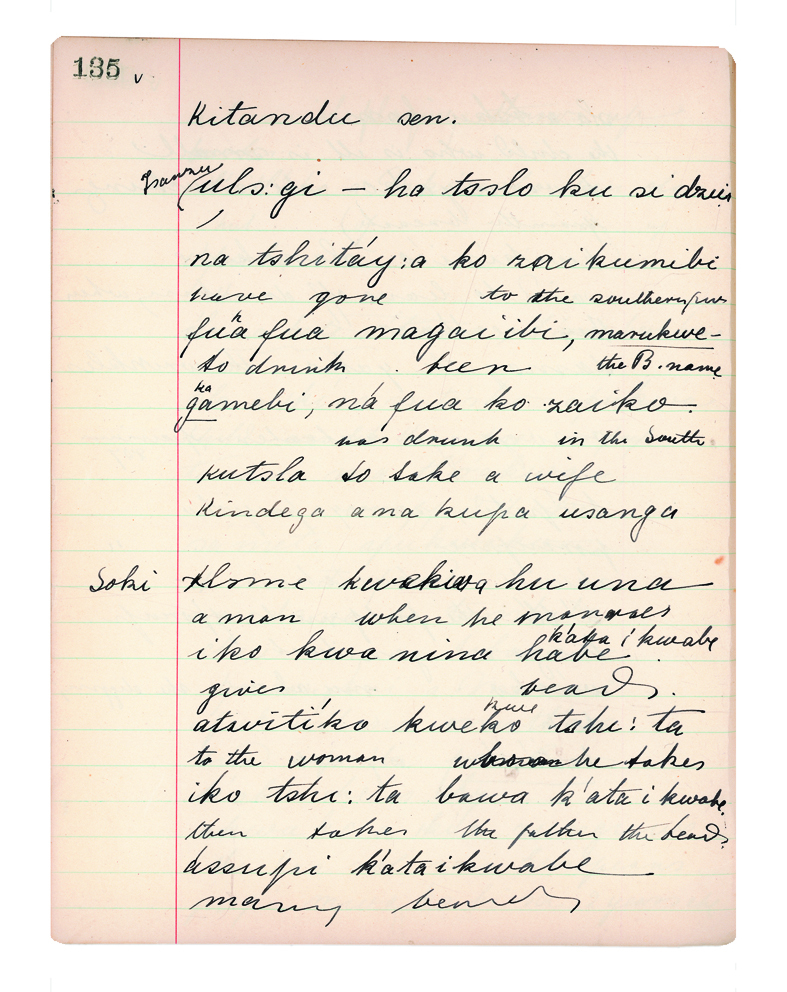 135 v
Kitandu sen.
(uls:gi — ha tsslo ku si
na tshitáy:a ko zaikumibi
have gone to the southern
fuá fua magai ibi, marukwe-
to drink . been the B. name
ka
gamebi, ná fua ko zaiko.
was drunk in the South
Kutsla to take a wife
Kindega ana kupa usanga
Soki ku una
a man when he
k'ata i kwabe
iko kwa nina habe
gives beads.
kwe
atsvitiko kweko tshe: ta
to the woman he takes
iko tshe: ta bawa k'ata i kwabe.
then takes the father the beads.
assupi k'ataikwabe
many beads